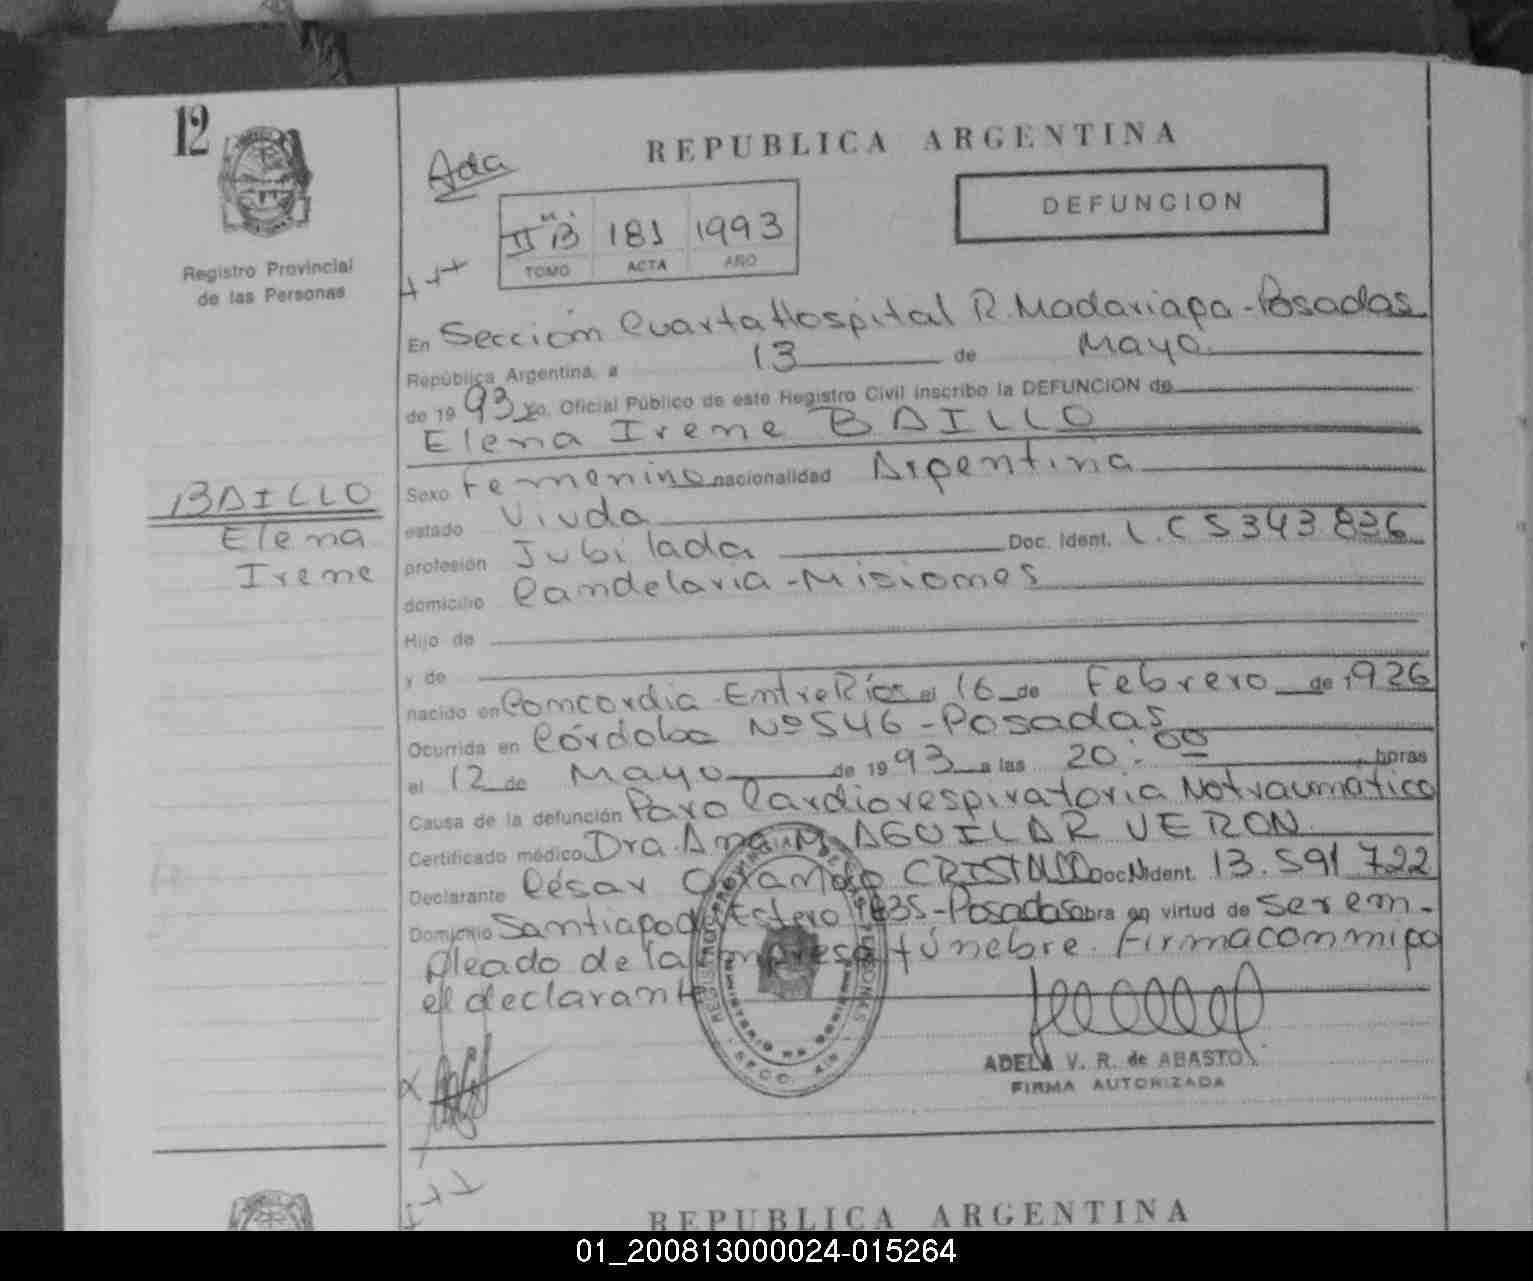 12
Registro Provincial
de las Personas
Ada
REPUBLICA ARGENTINA
DEFUNCION
II "B" 181 1993
TOMO ACTA AÑO
En Sección Cuarta Hospital R. Madariaga - Posadas
República Argentina, a 13 de Mayo
de 1993 yo, Oficial Público de este Registro Civil inscribo la DEFUNCION de
Elena Irene BAILLO
BAILLO
Elena
Irene
Sexo Femenino nacionalidad Argentina
estado Viuda
profesión Jubilada Doc. Ident. L.C 5343.826
domicilio Candelaria - Misiones
Hijo de
y de
nacido en Concordia - Entre Ríos el 16 de Febrero de 1926
Ocurrida en Córdoba Nº 546 - Posadas
el 12 de Mayo de 1993 a las 20:00 horas
Causa de la defunción Paro Cardiorespiratoria No traumatico
Certificado médico Dra. Ana M. AGUILAR VERON
Declarante César CRISTALDO Doc. Ident. 13.591.722
Domicilio Santiago d Estero -Posadas obra en virtud de ser em-
pleado de la Empresa fúnebre. Firma conmigo
el declarante
ADELA V. R. de ABASTO
FIRMA AUTORIZADA
REPUBLICA ARGENTINA
01_200813000024-015264